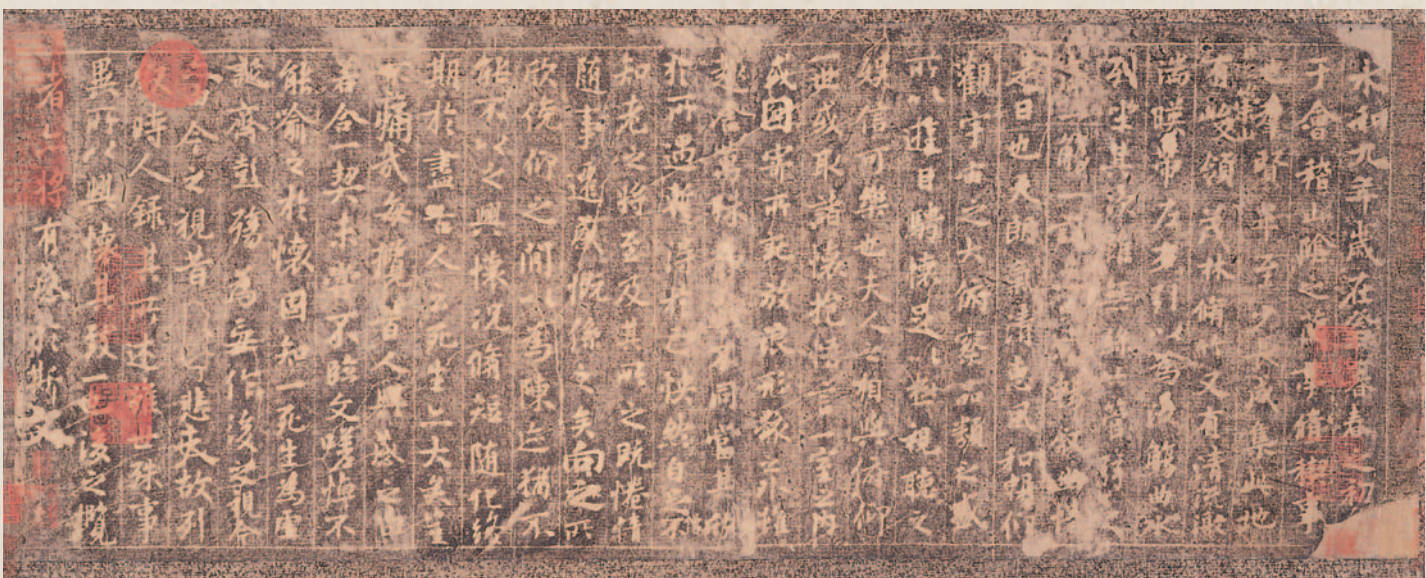 永和九年歲在癸丑暮春之初
于會稽山陰之蘭亭脩稧事
羣賢畢至少長咸集此地
有峻領茂林脩竹又有清流激
湍暎帶左右引以為流觴曲水
列坐其次雖無絲竹管弦之
觴一詠敘幽情
是日也天朗氣清惠風和暢仰
觀宇宙之大俯察品類之盛
所以遊目騁懷足以極視聽之
娛信可樂也夫人之相與俯仰
一世或取諸懷抱悟言一室之內
或因寄所託放浪形骸之外雖
趣舍萬殊靜躁不同當其欣
於所遇暫得於己快然自足不
知老之將至及其所之既惓情
隨事遷感慨係之矣向之所
欣俛仰之間以為陳迹猶不
能不以之興懷況脩短隨化終
期於盡古人云死生亦大矣豈
不痛哉每攬昔人興感之由
若合一契未嘗不臨文嗟悼不
能喻之於懷固知一死生為虛
誕齊彭殤為妄作後之視今
今之視昔悲夫故列
時人錄其所述世殊事
異所以興懷其致一後之攬
者將有感於斯文